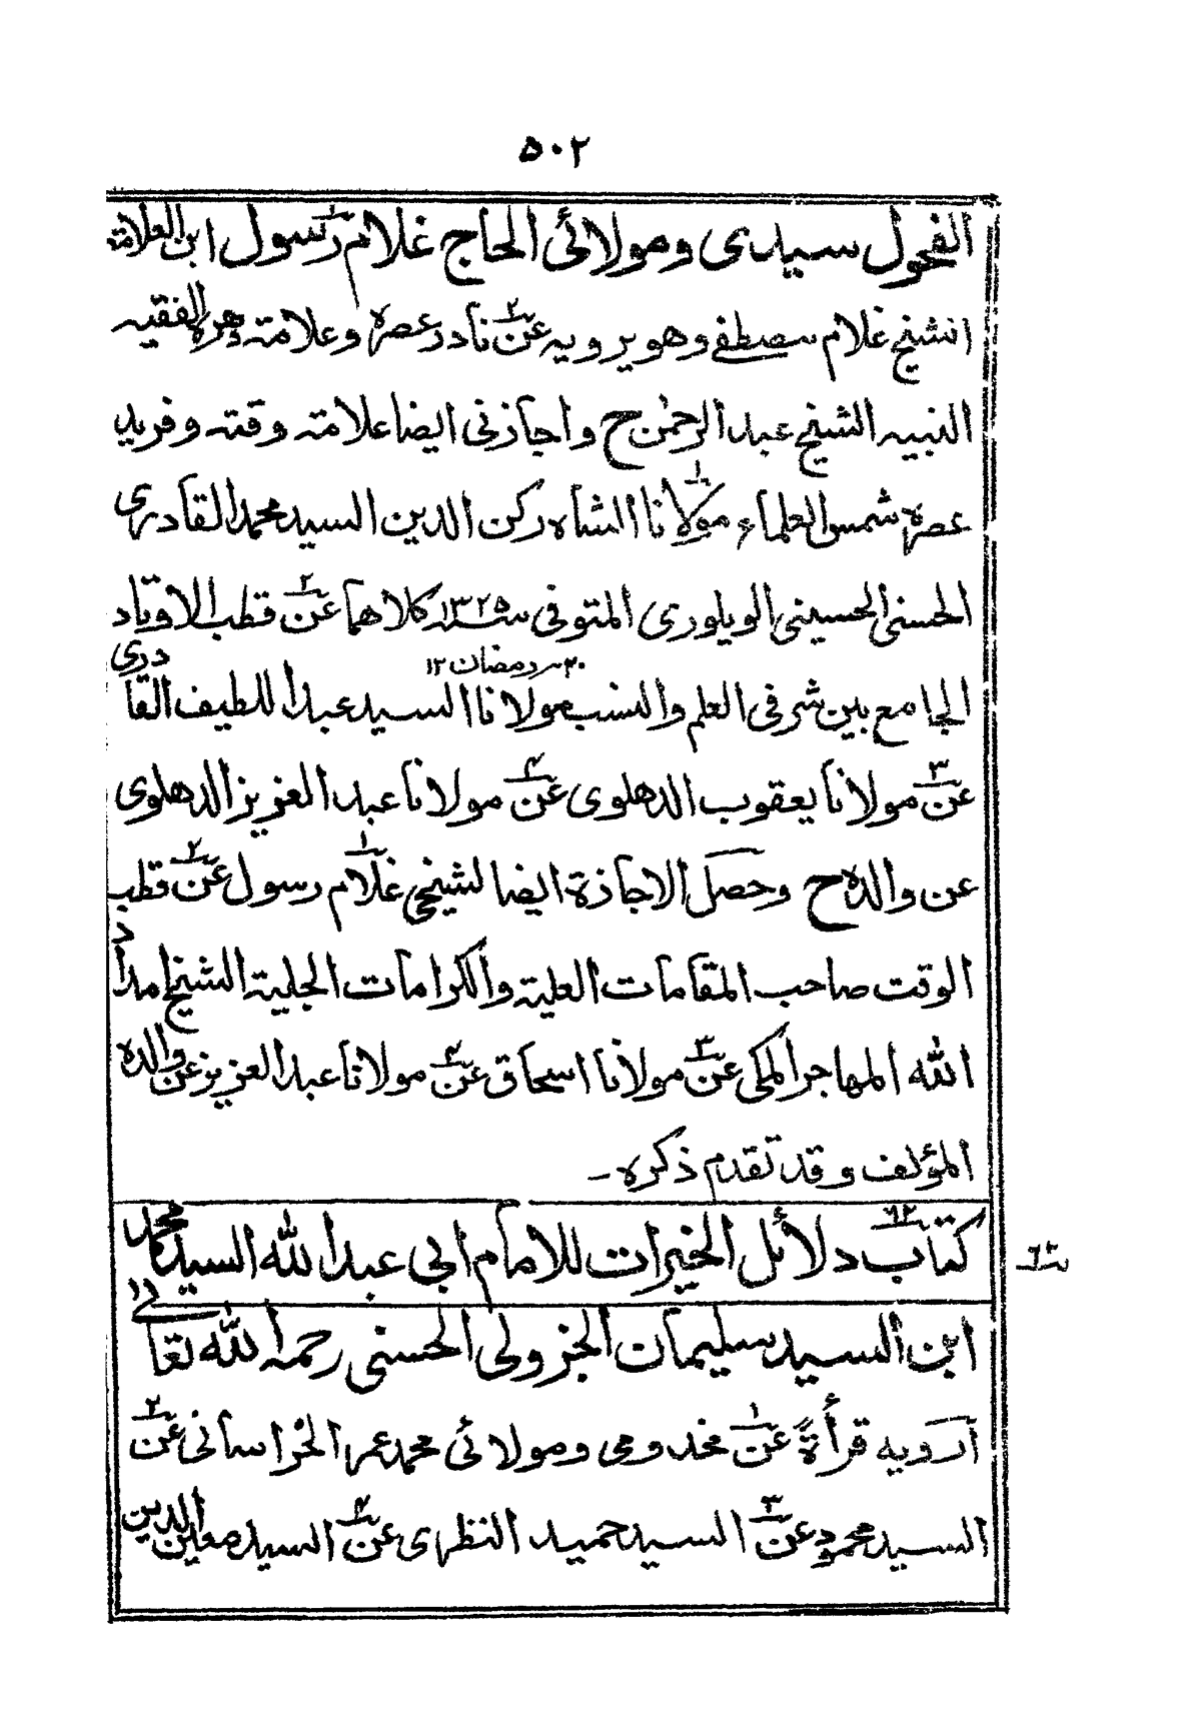 ٥٠٢
الفحول سيدى ومولائى الحاج غلام رسول ابن العلامة
الشيخ غلام مصطفے وهو يرويه عن نادر عصره وعلامة دهره الفقيه
النبيه الشيخ عبد الرحمٰن ح واجازنى ايضا علامة وقته وفريد
عصره شمس العلماء مولانا الشاه ركن الدين السيد محمد القادرى
الحسنى الحسينى الويلورى المتوفى سنة ١٣٢٥ كلاهما عن قطب الاوتاد
٢٠ رمضان ١٢
الجامع بين شرفى العلم والنسب مولانا السيد عبد اللطيف القادرى
عن مولانا يعقوب الدهلوى عن مولانا عبد العزيز الدهلوى
عن والده ح وحصل الاجازة ايضا لشيخى غلام رسول عن قطب
الوقت صاحب المقامات العلية والكرامات الجلية الشيخ امداد
الله المهاجر المكى عن مولانا اسحاق عن مولانا عبد العزيز عن والده
المؤلف وقد تقدم ذكره ـ
كتاب دلائل الخيرات للامام ابي عبد الله السيد محمد
ابن السيد سليمان الجزولى الحسنى رحمه الله تعالے
ارويه قرأة عن مخدومى ومولائى محمد عمر الخراسانى عن
السيد محمود عن السيد حميد النظرى عن السيد معين الدين